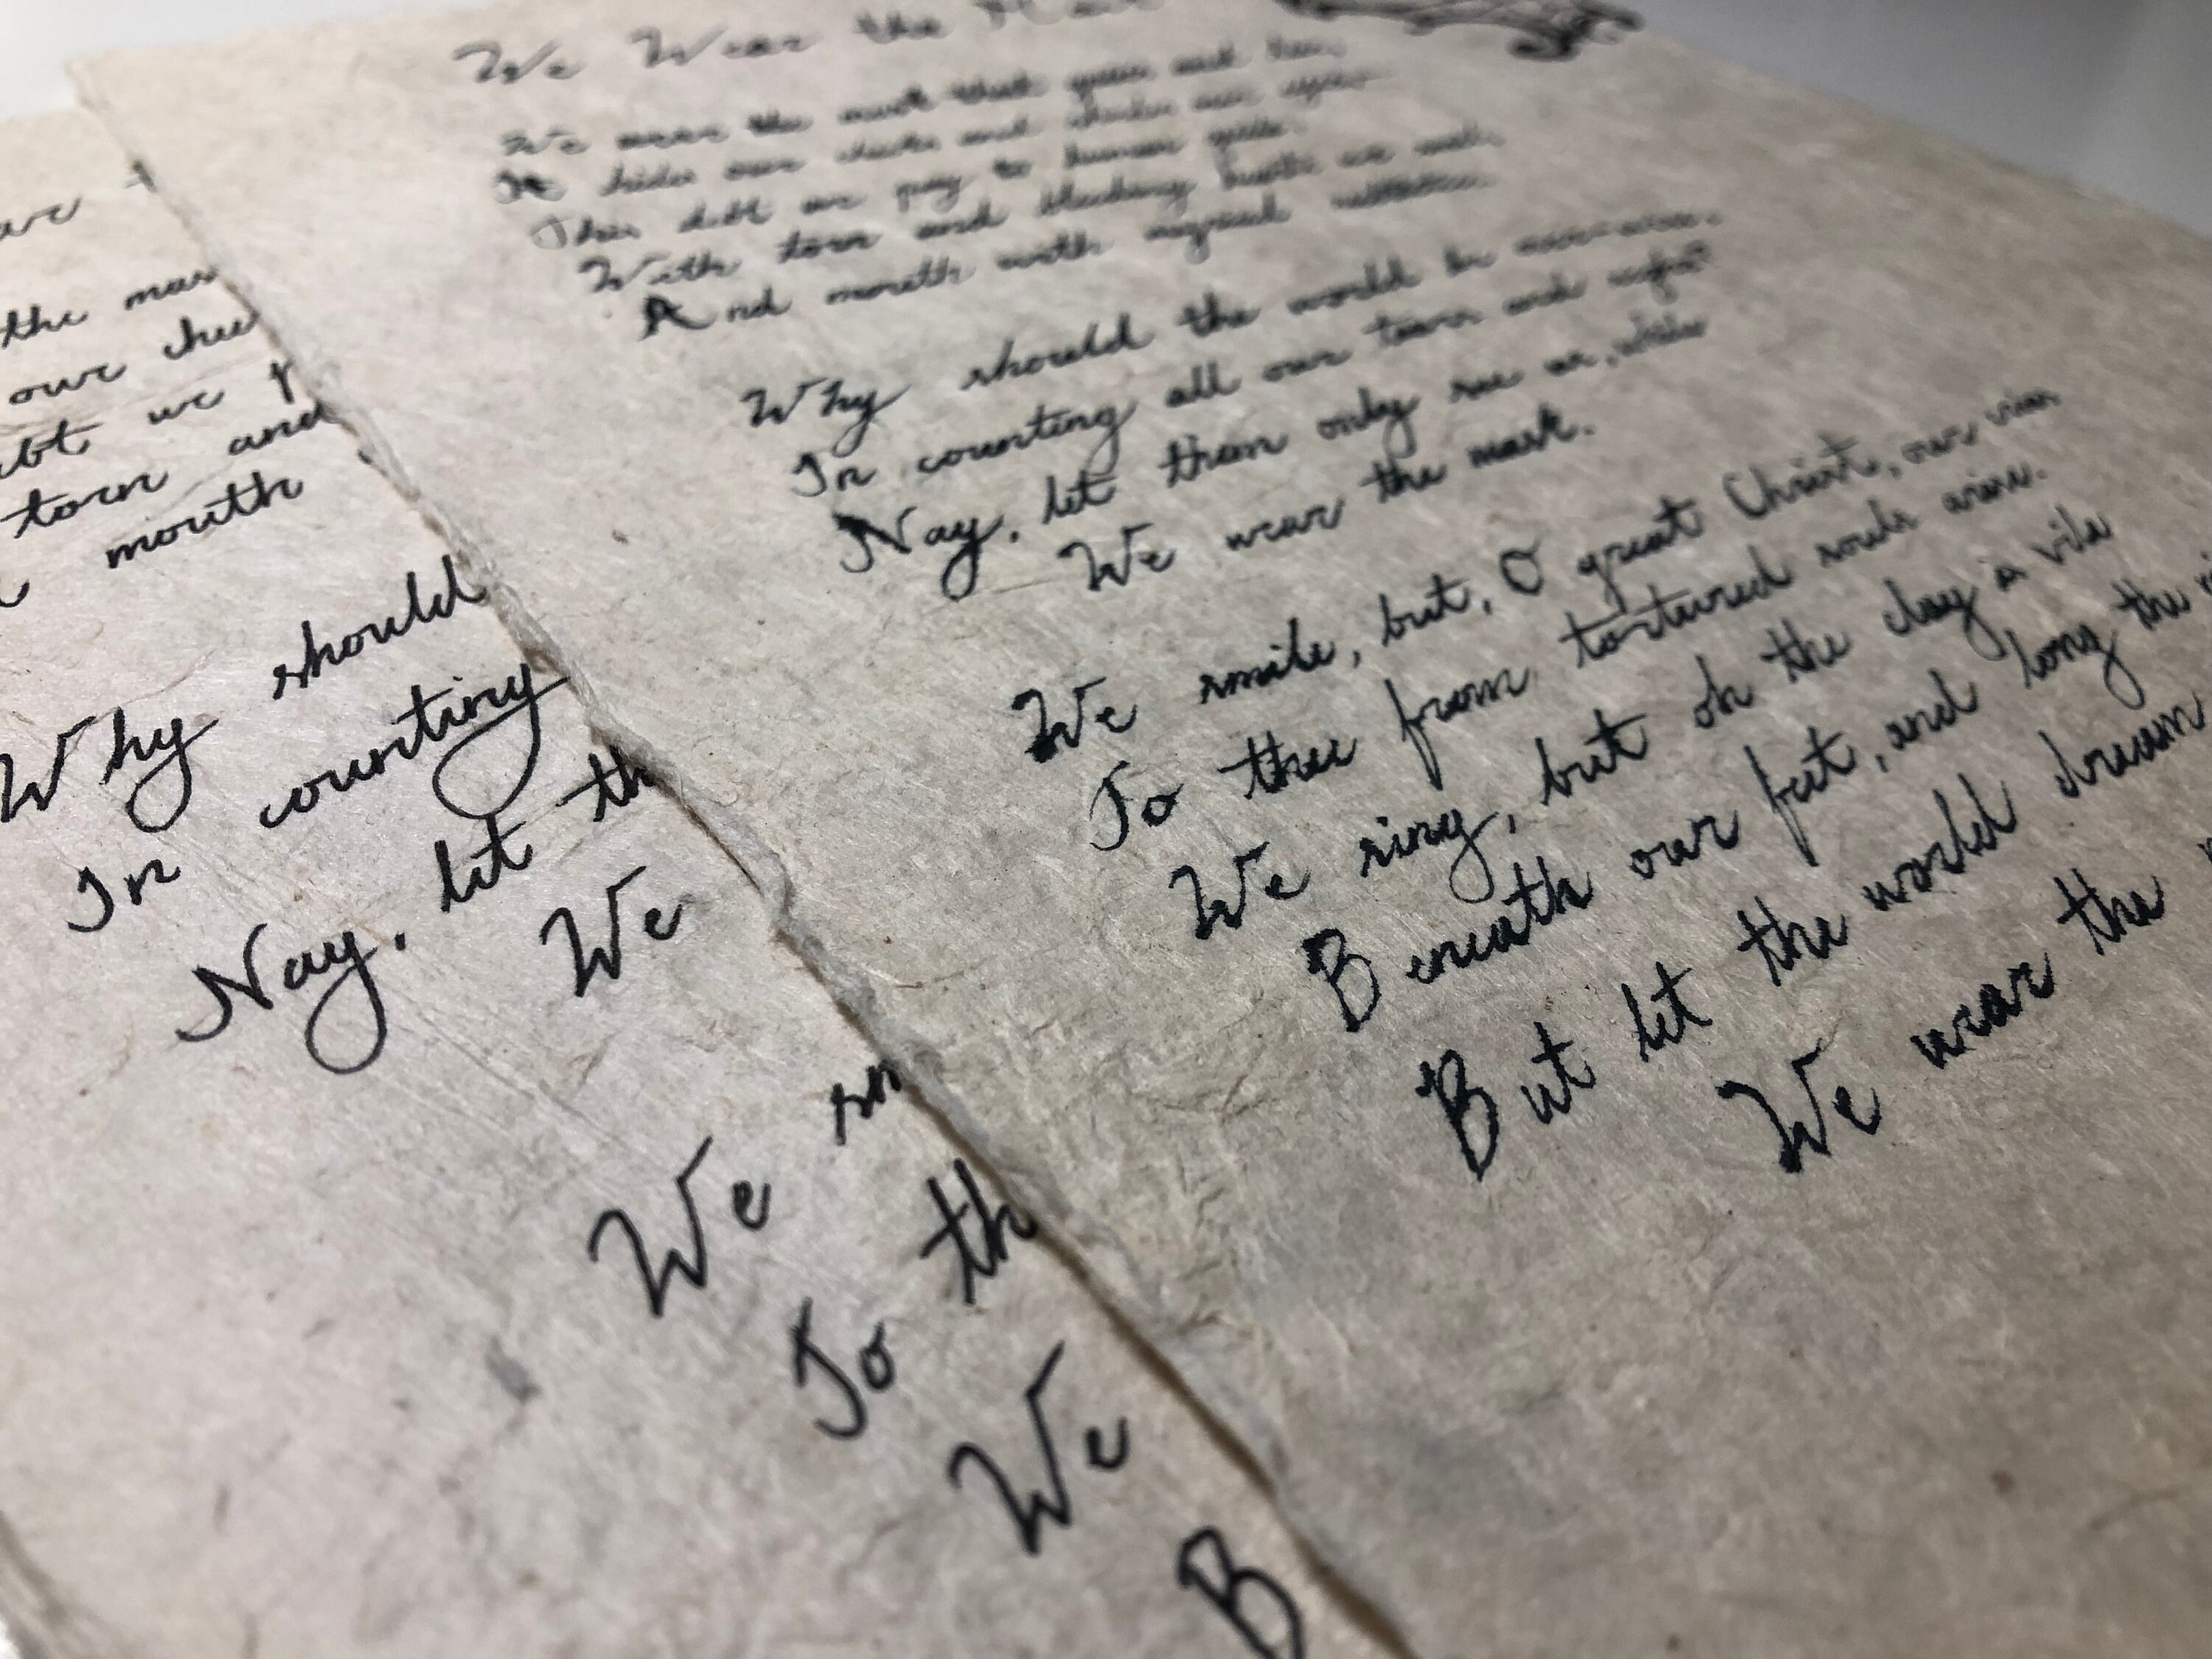 the mas
our chee
ebt we p
torn and
mouth
Why should
In counting
Nay, let th
We
We sm
To th
We
B
We Wear the Mask
We wear the mask that grins and lies,
It hides our cheeks and shades our eyes,
This debt we pay to human guile.
With torn and bleeding hearts we smile,
And mouth with myriad
Why should the world be over-wise,
In counting all our tears and sighs?
Nay, let them only see us, while
We wear the mask.
We smile, but, O great Christ, our cries
To thee from tortured souls arise.
We sing, but oh the clay is vile
Beneath our feet, and long the
But let the world dream
We wear the